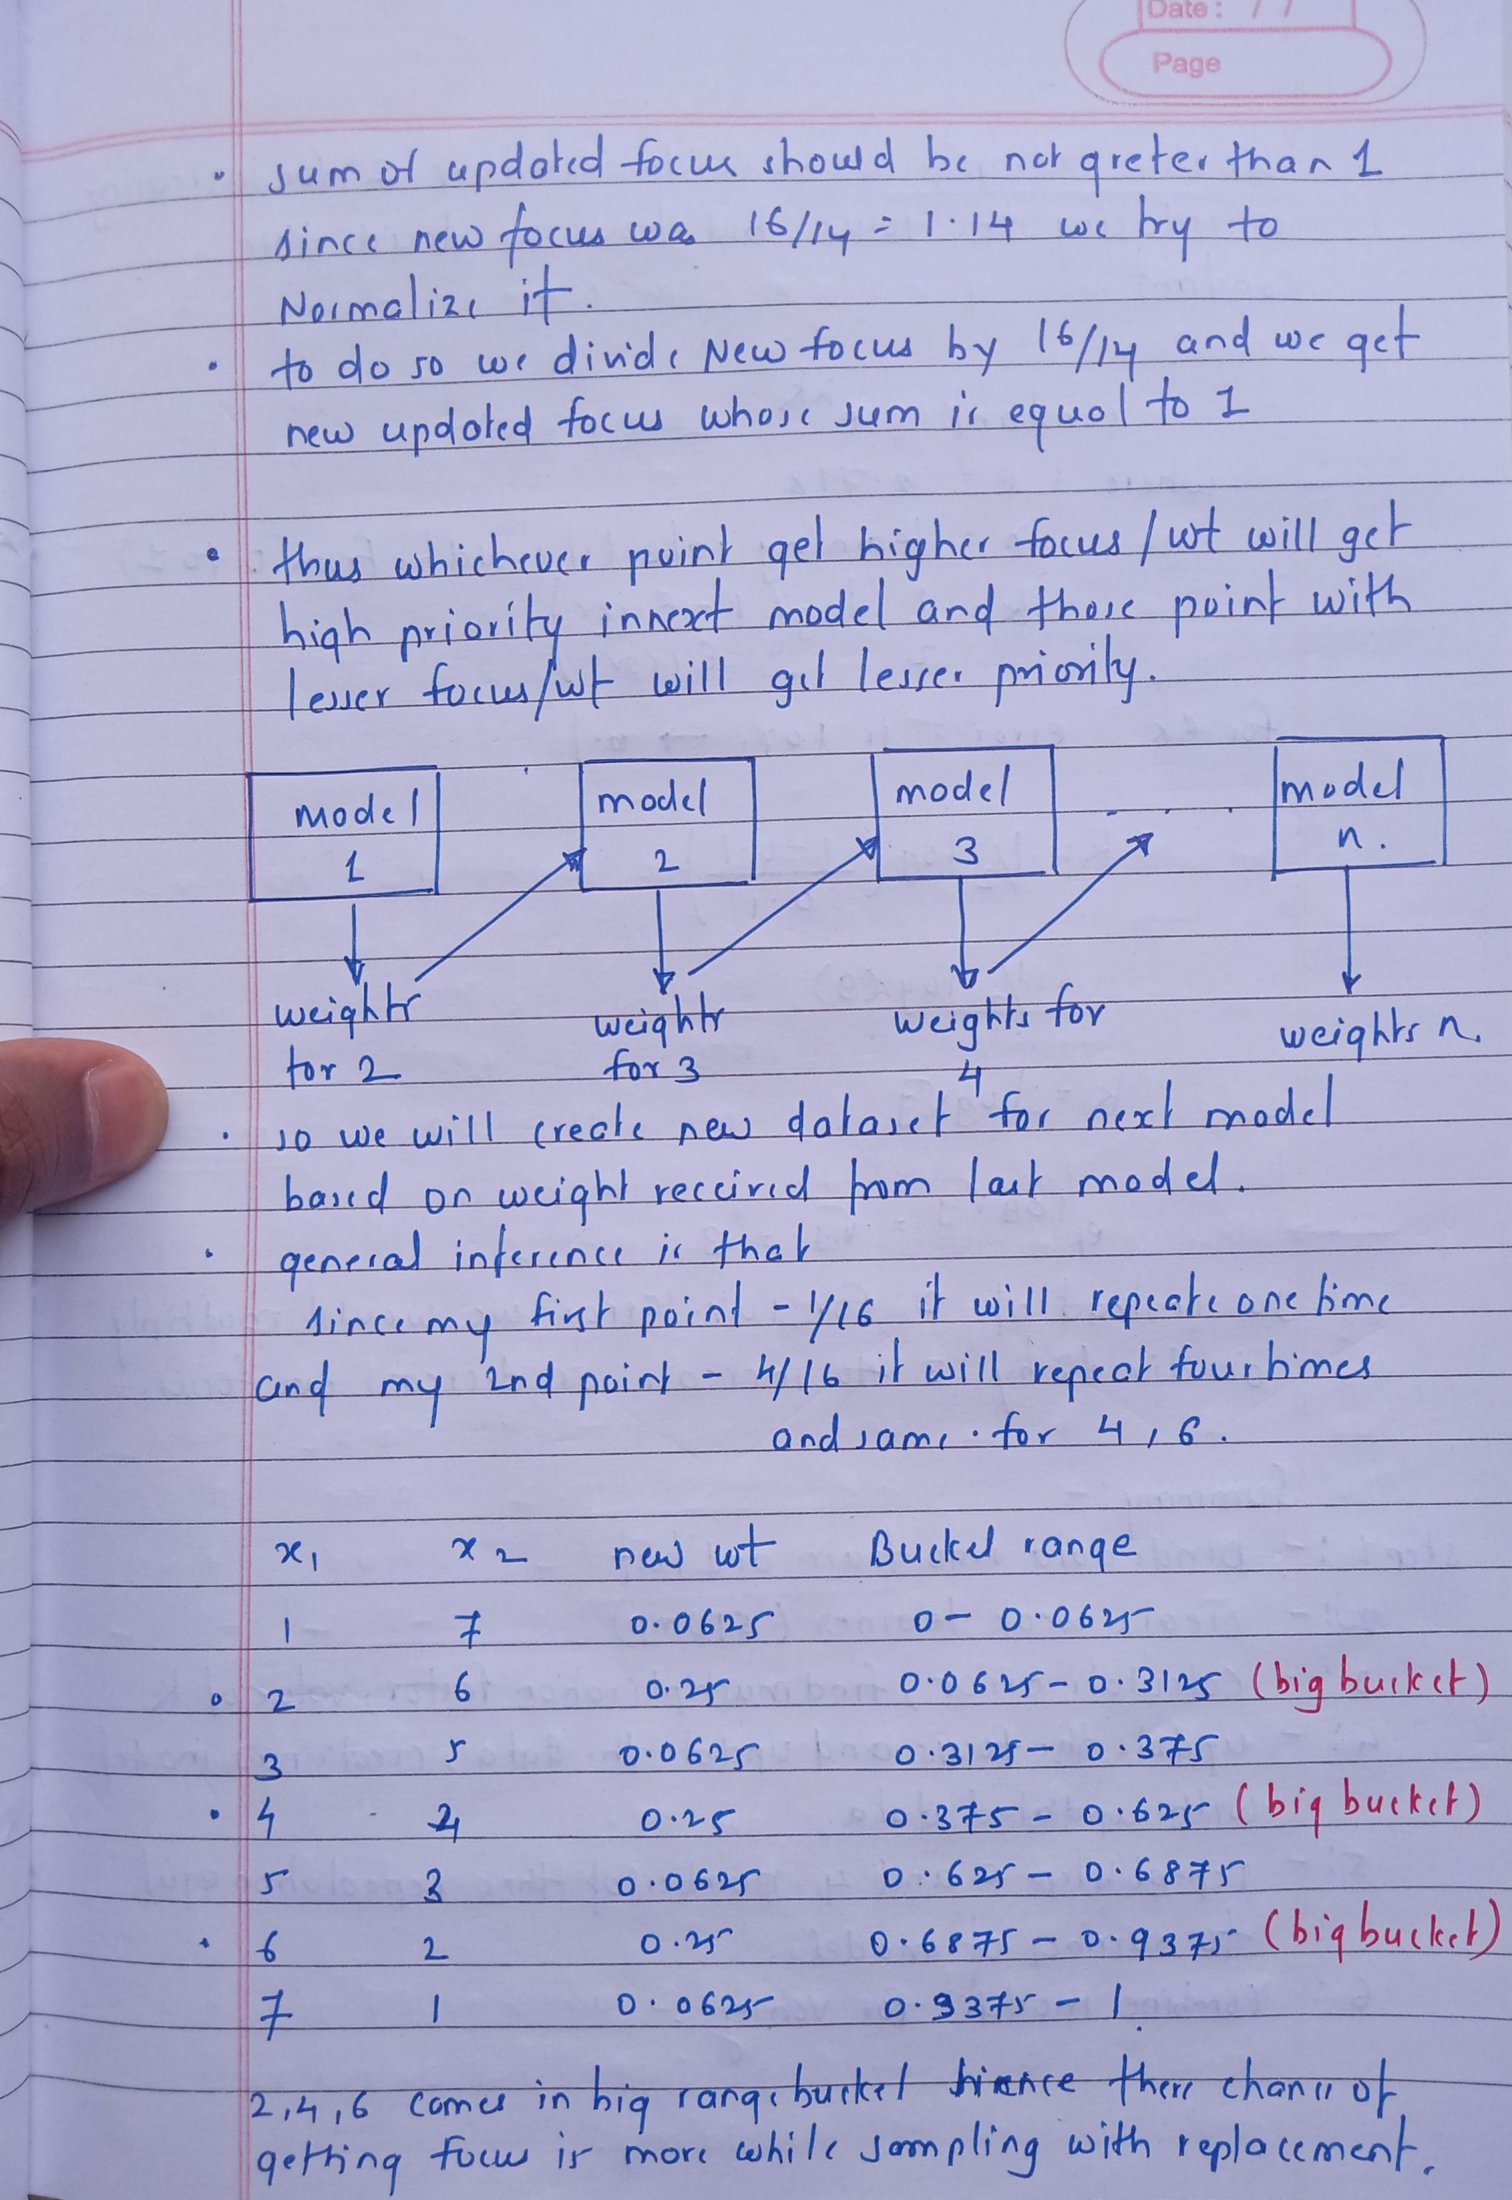 Date : / /
Page
• sum of updated focus should be not greter than 1
since new focus was 16/14 = 1.14 we try to
Normalize it.
• to do so we divide New focus by 16/14 and we get
new updated focus whose sum is equal to 1
• thus whichever point get higher focus/wt will get
high priority in next model and those point with
lesser focus/wt will get lesser priority.
model 1 model 2 model 3 . . . model n.
weights for 2 weights for 3 weights for 4 weights n.
• so we will create new dataset for next model
based on weight received from last model.
• general inference is that
since my first point - 1/16 it will repeate one time
and my 2nd point - 4/16 it will repeat four times
and same . for 4, 6.
x1 x2 new wt Bucket range
1 7 0.0625 0 - 0.0625
• 2 6 0.25 0.0625 - 0.3125 (big bucket)
3 5 0.0625 0.3125 - 0.375
• 4 4 0.25 0.375 - 0.625 (big bucket)
5 3 0.0625 0.625 - 0.6875
• 6 2 0.25 0.6875 - 0.9375 (big bucket)
7 1 0.0625 0.9375 - 1
2,4,6 comes in big range bucket hience there chance of
getting focus is more while sampling with replacement.